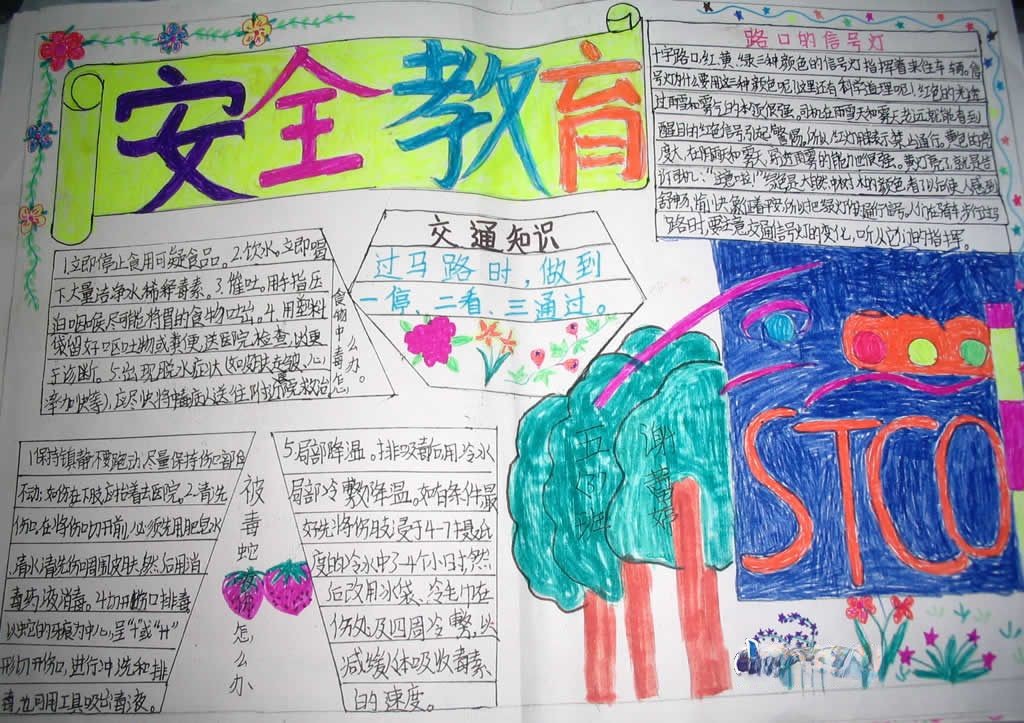 安全教育
路口的信号灯
十字路口,红、黄、绿三种颜色的信号灯指挥着来往车辆。信
号灯为什么要用这三种颜色呢?这里还有科学道理呢!红色的光透
过雨雪和雾气的本领很强。司机在雨雪天和雾天老远就能看到
醒目的红色信号引起警惕。所以红灯用来表示禁止通行。黄色的
度大,在阴雨和雾天,穿过雨雾的能力也很强。黄灯亮了就是告
诉司机:
绿色是大自然中树木的颜色,看了以后使人感到
舒畅、愉快、象征着平安,所以把绿灯做通行信号。人们在骑车、步行过马
路时,要注意交通信号灯的变化,听从它们的指挥。
交通知识
过马路时,做到
一停、二看、三通过。
食物中毒怎么办。
1.立即停止食用可疑食品。2.饮水。立即喝
下大量洁净水,稀释毒素。3.催吐。用手指压
迫咽喉,尽可能将胃的食物吐出。4.用塑料
袋留好呕吐物或粪便,送医院检查,以便
于诊断。5.出现脱水症状(如皮肤起皱、心
率加快等),应尽快将中毒病人送往附近医院救治。
被毒蛇咬伤怎么办
1.保持镇静不要跑动,尽量保持伤口部位
不动,如伤在下肢应抬着去医院。2.清洗
伤口。在将伤口切开前,必须先用肥皂水
、清水清洗伤口周围皮肤,然后用消
毒药液消毒。4.切开伤口排毒
以蛇的牙痕为中心,呈“十”或“艹”
形切开伤口,进行冲洗和排
毒,也可用工具吸出毒液。
5.局部降温。排吸毒后用冷水
局部冷敷降温。如有条件最
好先将伤肢浸于4-7摄氏
度的冷水中3-4个小时,然
后改用冰袋、冷毛巾在
伤处及四周冷敷,以
减缓人体吸收毒素
的速度。
五(3)班
STCO